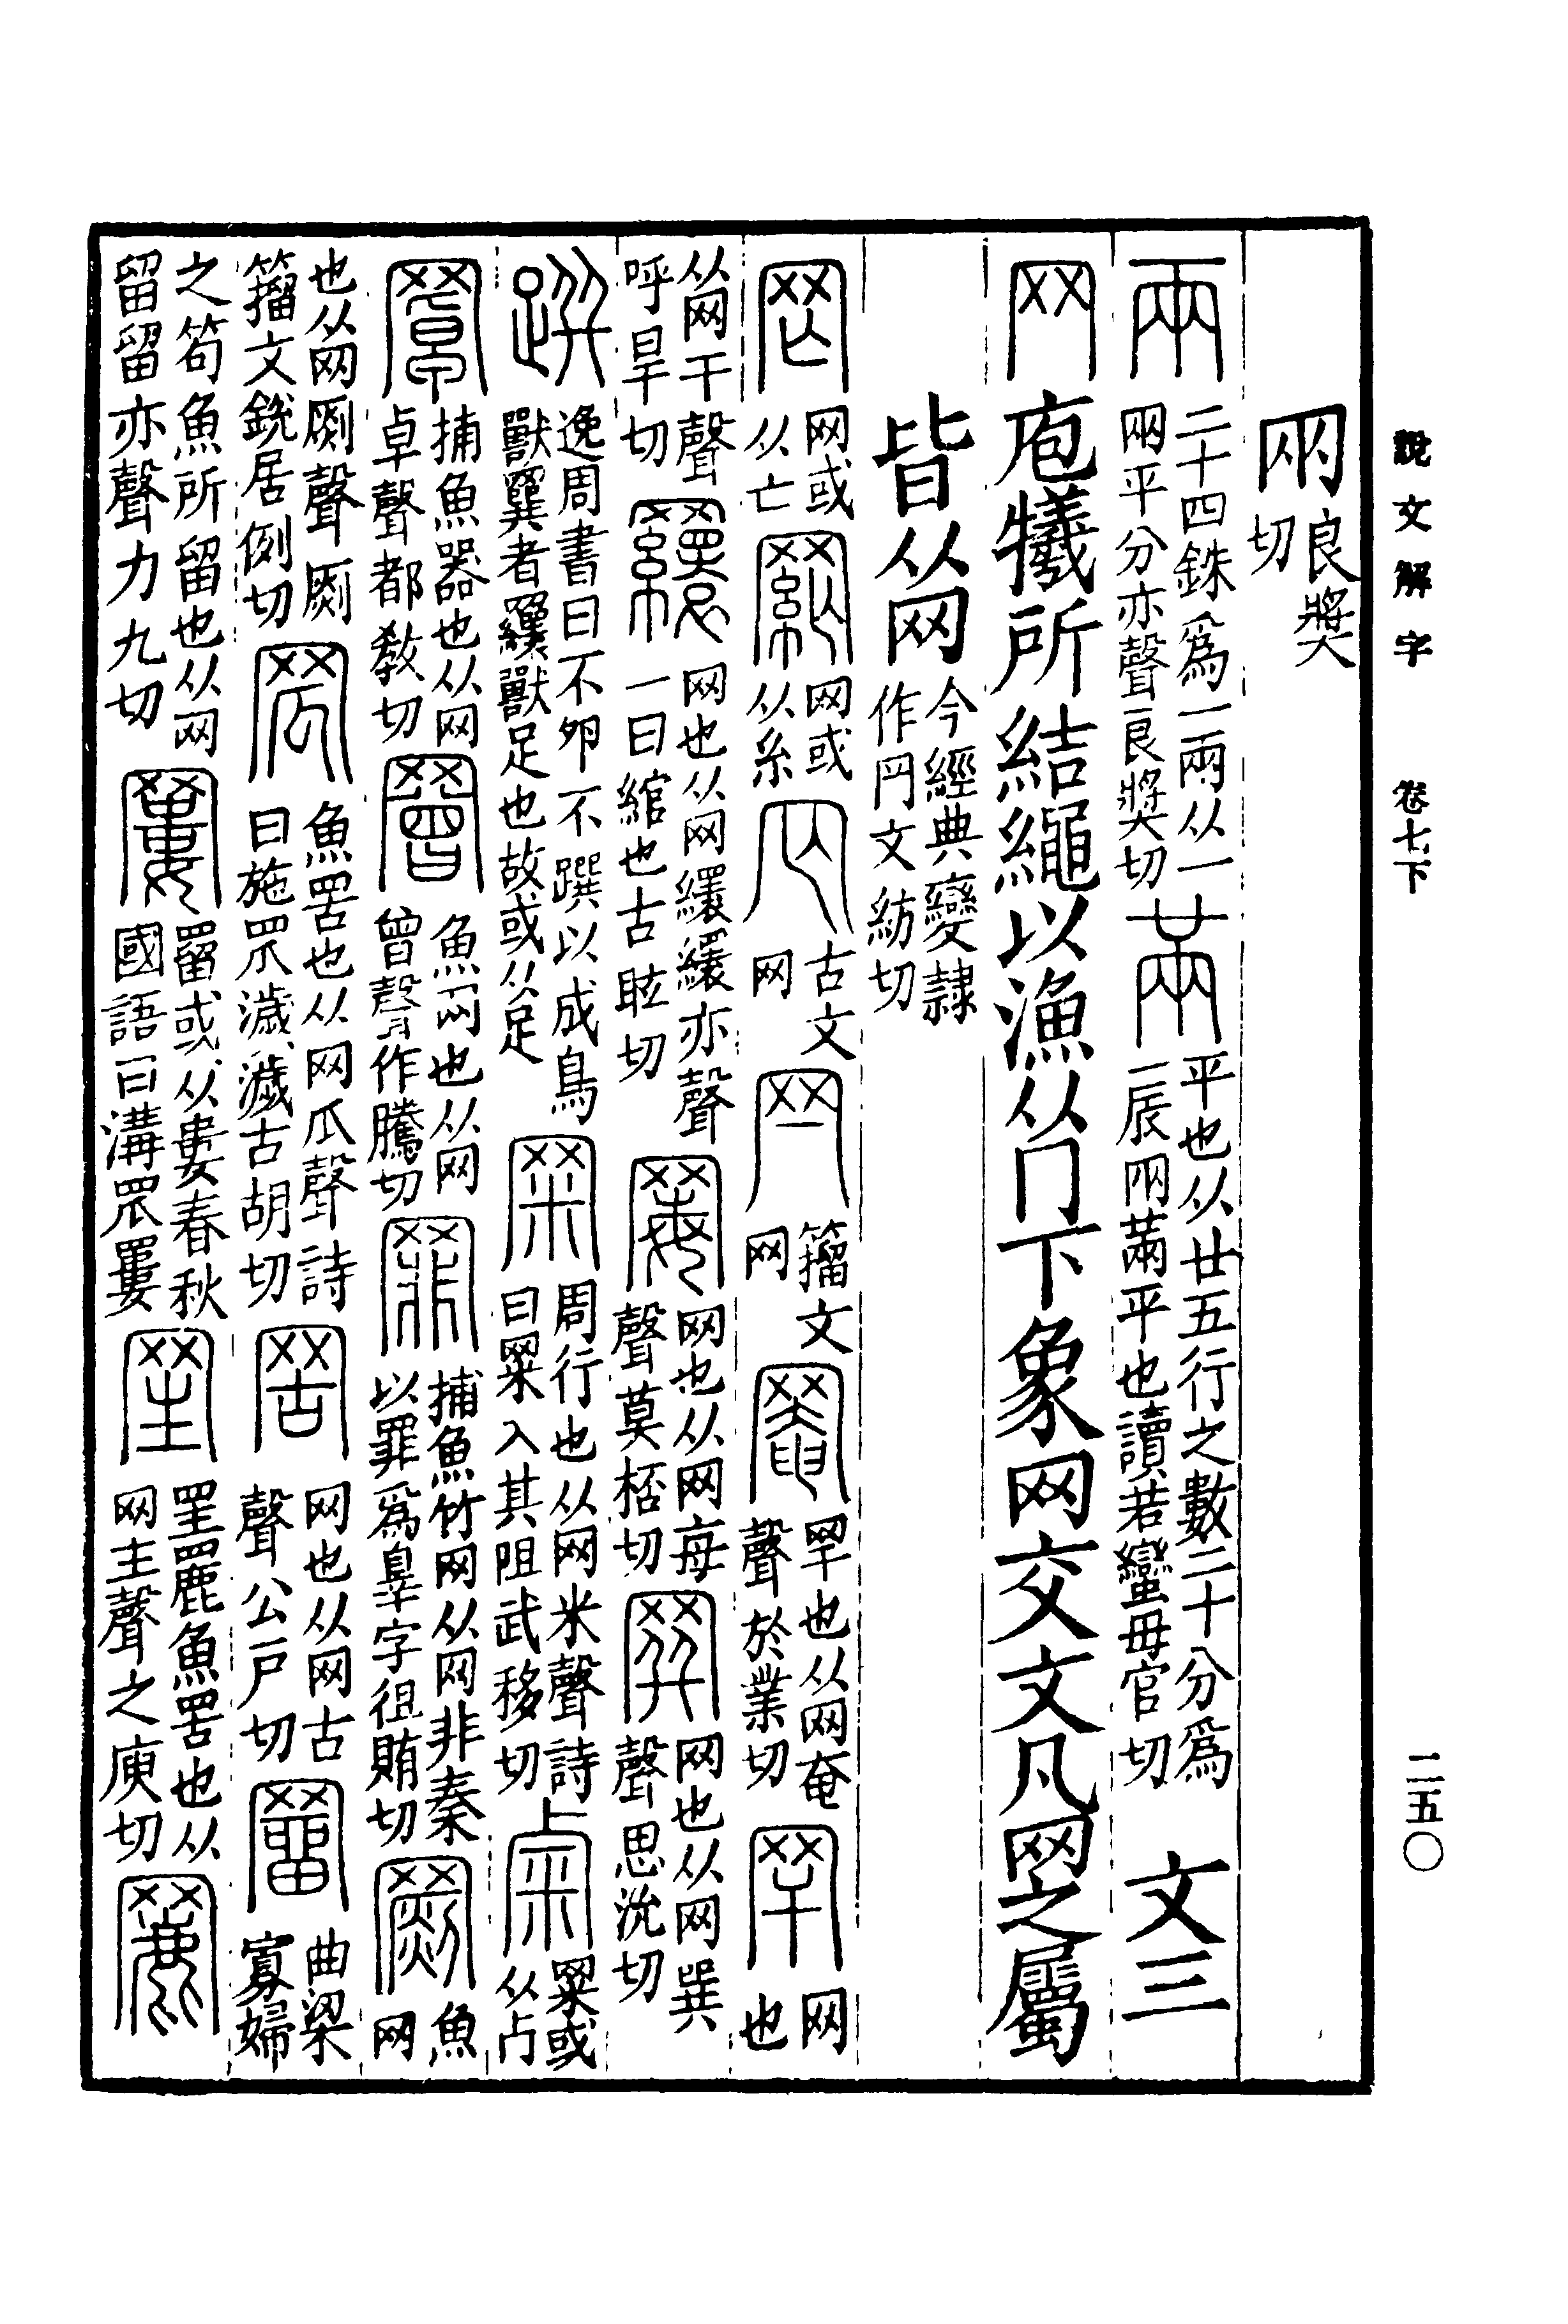 說文解字　卷七下　二五〇
㒳良奬切
兩二十四銖爲一兩从一㒳平分亦聲良奬切㒼平也从廿五行之數二十分爲一辰㒳㒼平也讀若蠻毋官切文三
网庖犧所結繩以漁从冂下象网交文凡网之屬
皆从网今經典變隸作𦉰文紡切
罔网或从亡䋞网或从糸古文网籒文网罨罕也从网奄聲於業切罕网也
从网干聲呼旱切𦌾网也从网繯繯亦聲一曰綰也古眩切𦋡网也从网每聲莫桮切𦌔网也从网巽聲思沇切
逸周書曰不卵不蹼以成鳥獸𦌔者𦌾獸足也故或从足䍘周行也从网米聲詩曰䍘入其阻武移切䍘或从占
罩捕魚器也从网卓聲都教切罾魚网也从网曾聲作騰切罪捕魚竹网从网非秦以罪爲辠字徂賄切罽魚网
也从网𠟩聲𠟩籒文銳居例切罛魚罟也从网瓜聲詩曰施罛濊濊古胡切罟网也从网古聲公戶切罶曲梁寡婦
之笱魚所留也从网留留亦聲力九切䍣罶或从婁春秋國語曰溝罛䍣罜罜麗魚罟也从网主聲之庾切䍡